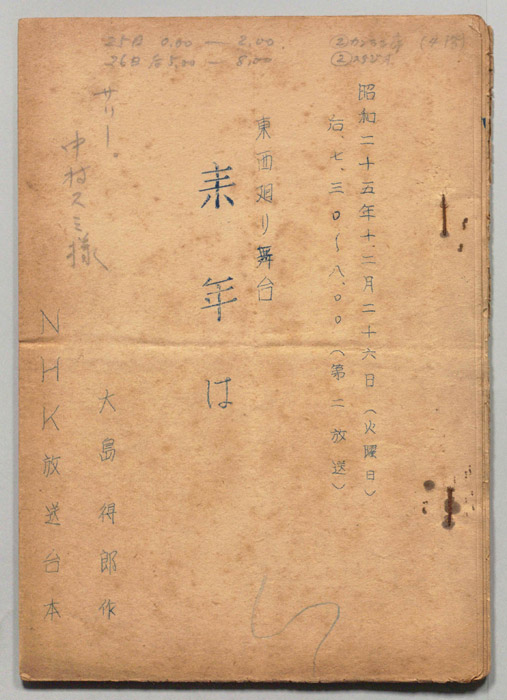 25日 0.00 — 2.00.
26日 后5.00 — 8.00
②スタジオ
昭和二十五年十二月二十六日（火曜日）
后.七.三〇〜八.〇〇（第二放送）
東西廻り舞台
来年は
サリー.
中村スミ様
大島得郎作
NHK放送台本